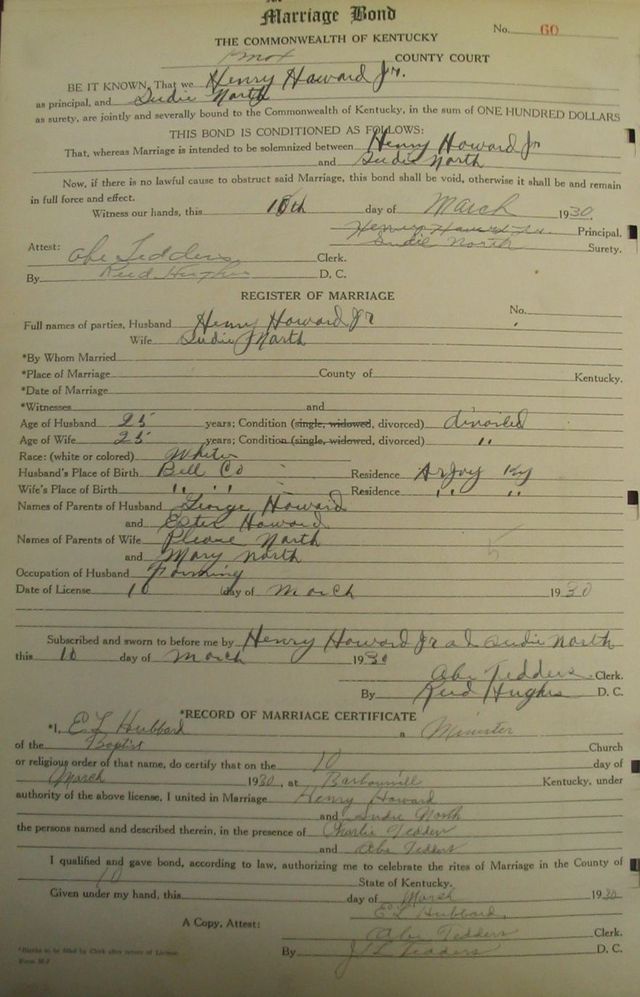 Marriage Bond
No. 60
THE COMMONWEALTH OF KENTUCKY
Knox COUNTY COURT
BE IT KNOWN, That we Henry Howard Jr.
as principal, and Sudie North
as surety, are jointly and severally bound to the Commonwealth of Kentucky, in the sum of ONE HUNDRED DOLLARS
THIS BOND IS CONDITIONED AS FOLLOWS:
That, whereas Marriage is intended to be solemnized between Henry Howard Jr
and Sudie North
Now, if there is no lawful cause to obstruct said Marriage, this bond shall be void, otherwise it shall be and remain
in full force and effect.
Witness our hands, this 10th day of March 1930.
Henry Howard Jr. Principal.
Sudie North Surety.
Attest: Abe Tedders Clerk.
By Reed Hughes D. C.
REGISTER OF MARRIAGE
No.
Full names of parties, Husband Henry Howard Jr
Wife Sudie North
*By Whom Married
*Place of Marriage County of Kentucky.
*Date of Marriage
*Witnesses and
Age of Husband 25 years; Condition (single, widowed, divorced) divorced
Age of Wife 25 years; Condition (single, widowed, divorced) "
Race: (white or colored) White
Husband's Place of Birth Bell Co Residence Arjay Ky
Wife's Place of Birth " " Residence " "
Names of Parents of Husband George Howard
and Ester Howard
Names of Parents of Wife North
and Mary North
Occupation of Husband Farming
Date of License 10 day of March 1930
Subscribed and sworn to before me by Henry Howard Jr and Sudie North
this 10 day of March 1930
Abe Tedders Clerk.
By Reed Hughes D. C.
*RECORD OF MARRIAGE CERTIFICATE
*I, E L Hubbard a Minister
of the Baptist Church
or religious order of that name, do certify that on the 10 day of
March 1930, at Barbourvill Kentucky, under
authority of the above license, I united in Marriage Henry Howard
and Sudie North
the persons named and described therein, in the presence of Charlie Tedders
and Abe Tedders
I qualified and gave bond, according to law, authorizing me to celebrate the rites of Marriage in the County of
State of Kentucky.
Given under my hand, this 10 day of March 1930
E L Hubbard.
A Copy, Attest: Abe Tedders Clerk.
By J L Tedders D. C.
*Blanks to be filled by Clerk after return of License